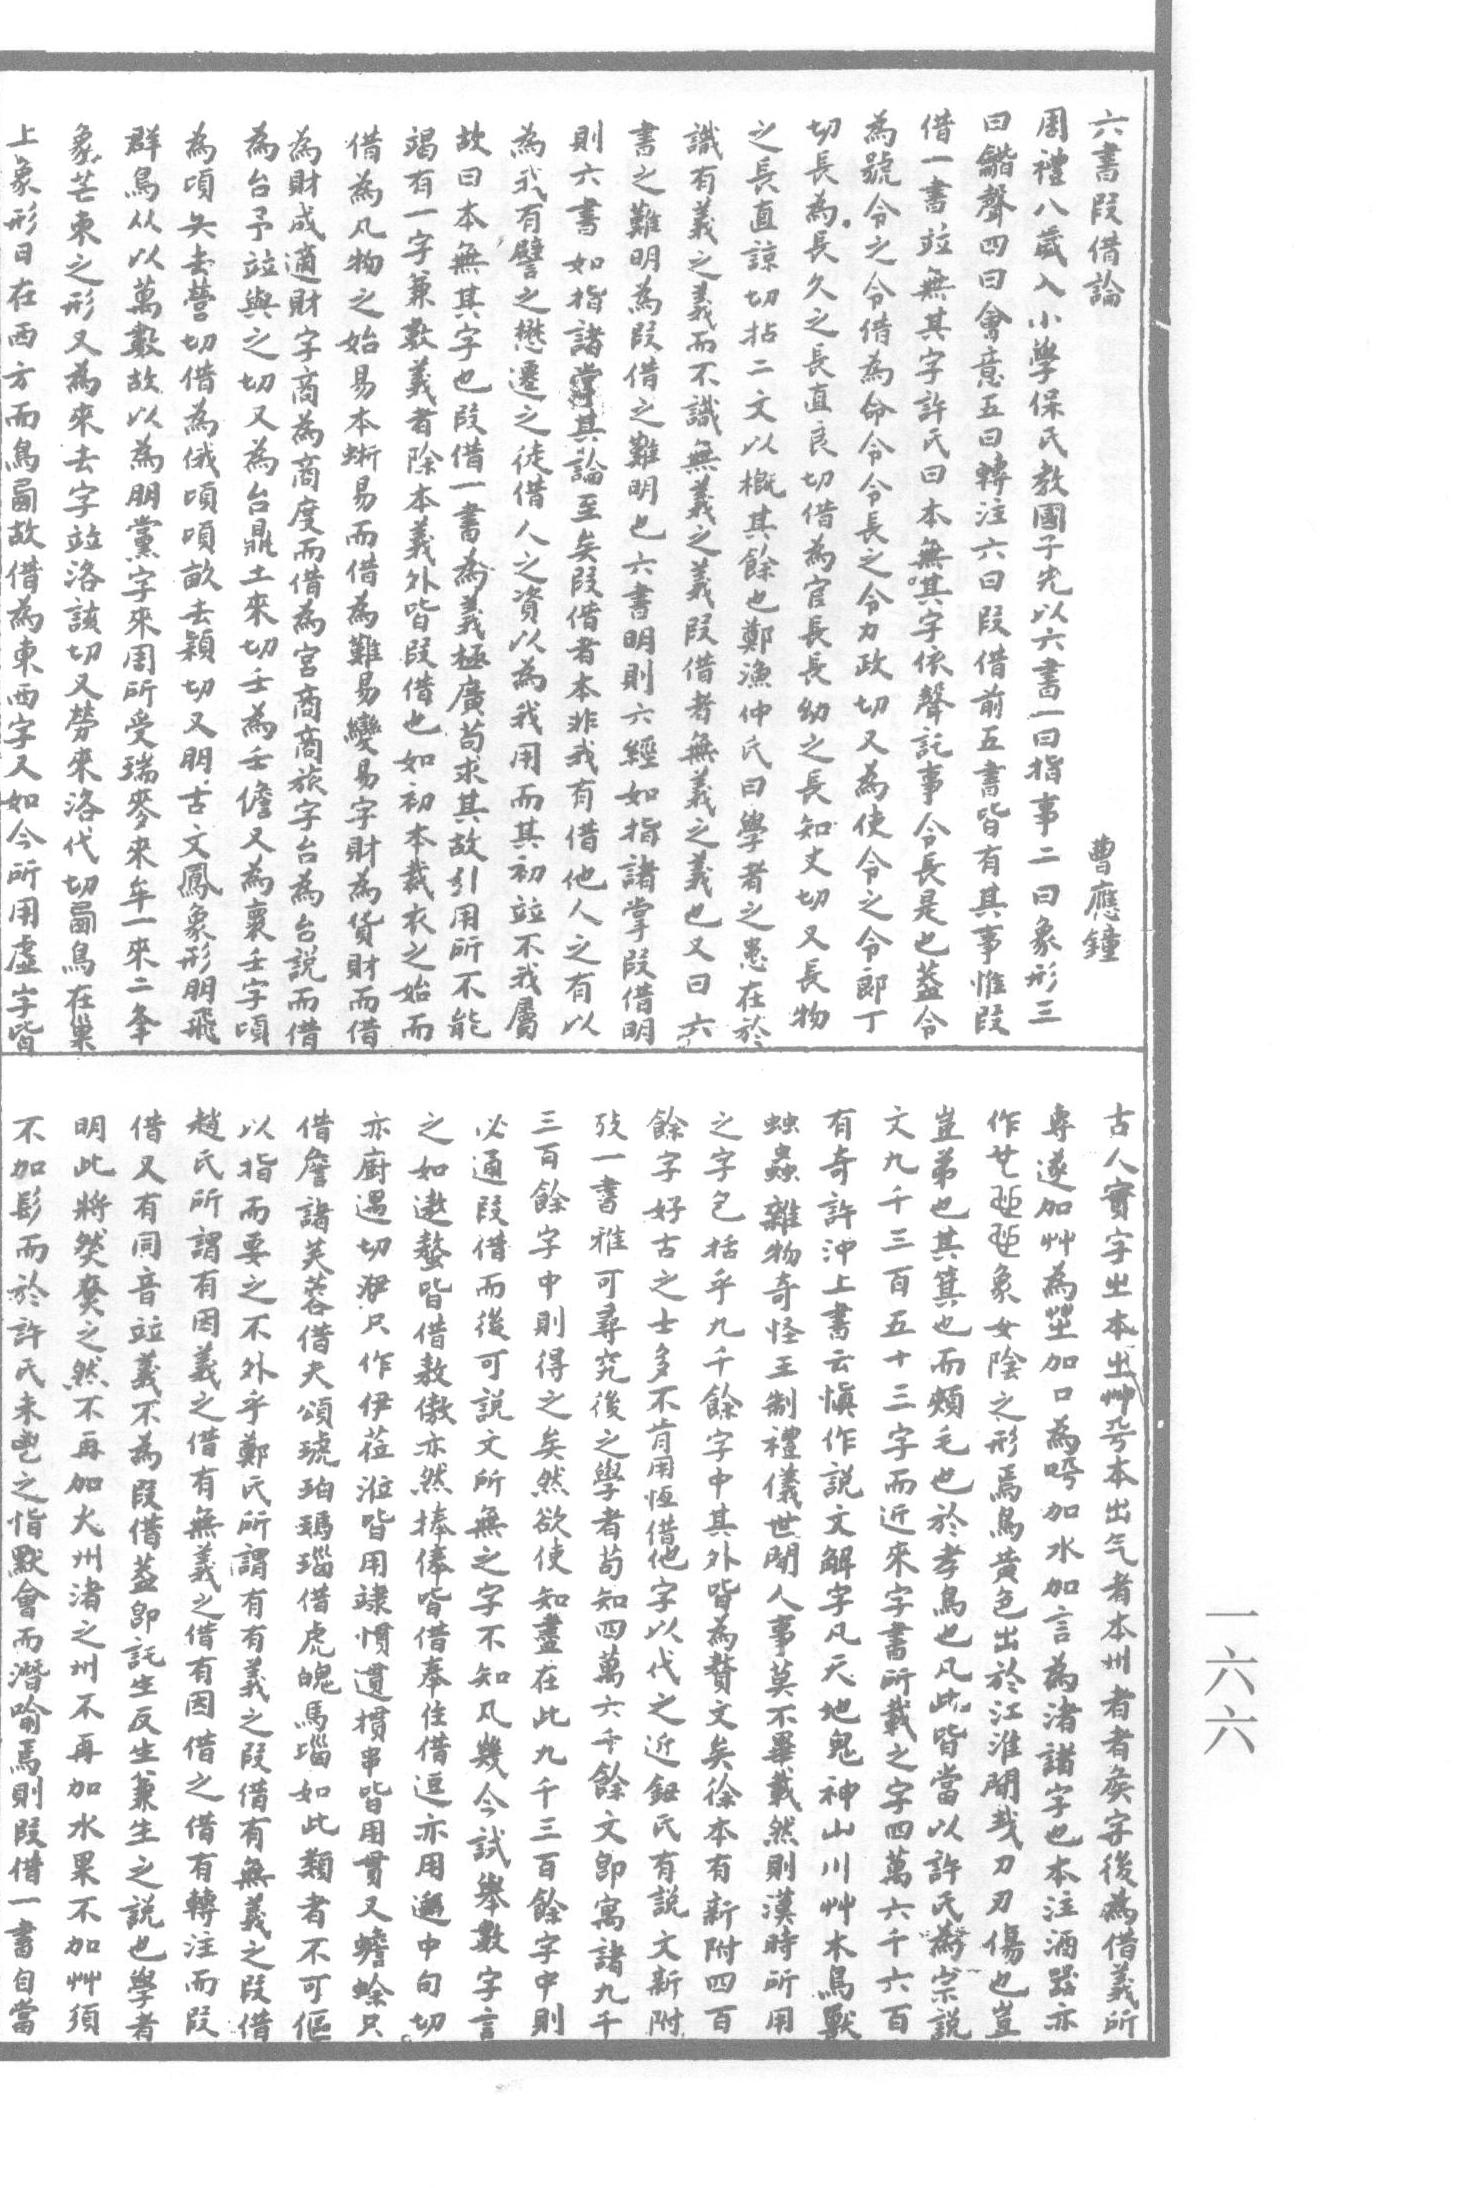 六書叚借論　曹應鐘
周禮八歲入小學保氏教國子先以六書一曰指事二曰象形三
曰龤聲四曰會意五曰轉注六曰叚借前五書皆有其事惟叚
借一書竝無其字許氏曰本無其字依聲託事令長是也葢令
為號令之令借為命令令長之令力政切又為使令之令郎丁
切長為長久之長直良切借為官長長幼之長知丈切又長物
之長直諒切拈二文以概其餘也鄭漁仲氏曰學者之患在於
識有義之義而不識無義之義叚借者無義之義也又曰六
書之難明為叚借之難明也六書明則六經如指諸掌叚借明
則六書如指諸掌其論至矣叚借者本非我有借他人之有以
為我有譬之懋遷之徒借人之資以為我用而其初竝不我屬
故曰本無其字也叚借一書為義極廣苟求其故引用所不能
竭有一字兼數義者除本義外皆叚借也如初本裁衣之始而
借為凡物之始易本蜥易而借為難易變易字財為貨財而借
為財成適財字商為商度而借為宮商商旅字台為台說而借
為台予竝與之切又為台鼎土來切壬為壬儋又為褱壬字頃
為頃矢去營切借為俄頃頃畝去穎切又朋古文鳳象形朋飛
群鳥从以萬數故以為朋黨字來周所受瑞麥來牟一來二夆
象芒朿之形又為來去字竝洛該切又勞來洛代切㢴鳥在巢
上象形日在西方而鳥㢴故借為東西字又如今所用虛字皆
古人實字㞢本㞢艸兮本出气者本州者者矦字後為借義所
專遂加艸為𦯓加口為呺加水加言為渚諸字也本注酒器亦
作芑𠃟𠃟象女陰之形焉鳥黃色出於江淮閒㦲刀刃傷也豈
豈弟也其箕也而頰毛也於孝鳥也凡此皆當以許氏為宗說
文九千三百五十三字而近來字書所載之字四萬六千六百
有奇許沖上書云愼作說文解字凡天地鬼神山川艸木鳥獸
䖵蟲雜物奇怪王制禮儀世閒人事莫不畢載然則漢時所用
之字包括乎九千餘字中其外皆為贅文矣徐本有新附四百
餘字好古之士多不肯用恆借他字以代之近鈕氏有說文新附
攷一書雅可尋究後之學者苟知四萬六千餘文即寓諸九千
三百餘字中則得之矣然欲使知盡在此九千三百餘字中則
必通叚借而後可說文所無之字不知凡幾今試舉數字言
之如遨螯皆借敖傲亦然捧俸皆借奉住借逗亦用邂中句切
亦廚遇切㴒只作伊莅涖皆用䇐慣遺摜串皆用貫又蟾蜍只
借詹諸芙蓉借夫頌琥珀瑪瑙借虎魄馬𡿺如此類者不可傴
以指而要之不外乎鄭氏所謂有有義之叚借有無義之叚借
趙氏所謂有因義之借有無義之借有因借之借有轉注而叚
借又有同音竝義不為叚借葢即託生反生兼生之說也學者
明此將熒㷊之然不再加火州渚之州不再加水果不加艸須
不加髟而於許氏未㔾之恉默會而潛喻焉則叚借一書自當
一六六